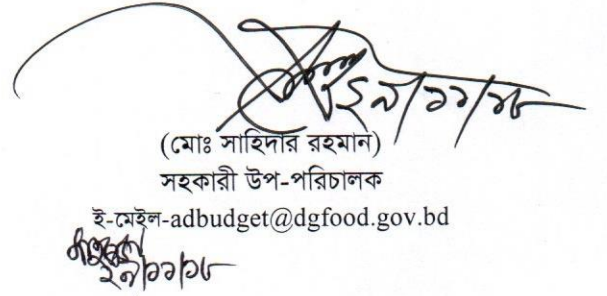 ২৯/১১/১৮
(মোঃ সাহিদার রহমান)
সহকারী উপ-পরিচালক
ই-মেইল-adbudget@dgfood.gov.bd
২৯/১১/১৮